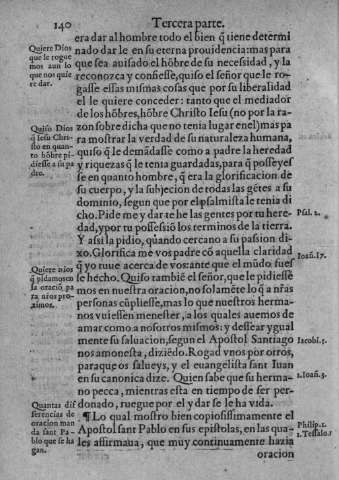 140
Tercera parte.
era dar al hombre todo el bien q̃ tiene determi
nado dar le en su eterna prouidencia: mas para
que sea auisado el hõbre de su necessidad, y la
reconozca y confiesse, quiso el señor que le ro-
gasse essas mismas cosas que por su liberalidad
el le quiere conceder: tanto que el mediador
de los hõbres, hõbre Christo Iesu (no por la ra-
zon sobre dicha que no tenia lugar en el) mas pa
ra mostrar la verdad de su naturaleza humana,
quiso q̃ le demãdasse como a padre la heredad
y riquezas q̃ le tenia guardadas, para q̃ posseyes
se en quanto hombre, q̃ era la glorificacion de
su cuerpo, y la subjecion de todas las gẽtes a su
dominio, segun que por el psalmista le tenia di
cho. Pide me y dar te he las gentes por tu here-
dad, y por tu possessiõ los terminos de la tierra.
Y assi la pidio, quando cercano a su passion di-
xo. Glorifica me vos padre cõ aquella claridad
q̃ yo tuue acerca de vos: ante que el mũdo fues
se hecho. Quiso tambiẽ el señor, que le pidiesse
mos en nuestra oracion, no solamẽte lo q̃ a nr̃as
personas cũpliesse, mas lo que nuestros herma-
nos vuiessen menester, a los quales auemos de
amar como a nosotros mismos: y dessear ygual
mente su saluacion, segun el Apostol Santiago
nos amonesta, diziẽdo. Rogad vnos por otros,
paraque os salueys, y el euangelista sant Iuan
en su canonica dize. Quien sabe que su herma-
no pecca, mientras esta en tiempo de ser per-
donado, ruegue por el y dar se le ha vida.
¶Lo qual mostro bien copiosissimamente el
Apostol sant Pablo en sus epistolas, en las qua-
les affirmaua, que muy continuamente hazia
oracion
Quiere Dios
que le rogue
mos aun lo
que nos quie
re dar.
Quiso Dios
q̃ Iesu Chri-
sto en quan-
to hõbre pi-
diesse a su pa
dre.
Quiere nr̃os
q̃ pidamos en
la oraciõ, pa
ra nr̃os pro-
ximos.
Quantas dif
ferencias de
oracion man
da sant Pa-
blo que se ha
gan.
Psal. 2.
Ioañ. 17.
Iacobi. 5.
1. Ioañ. 5.
Philip. 1.
1. Tessalo. 1